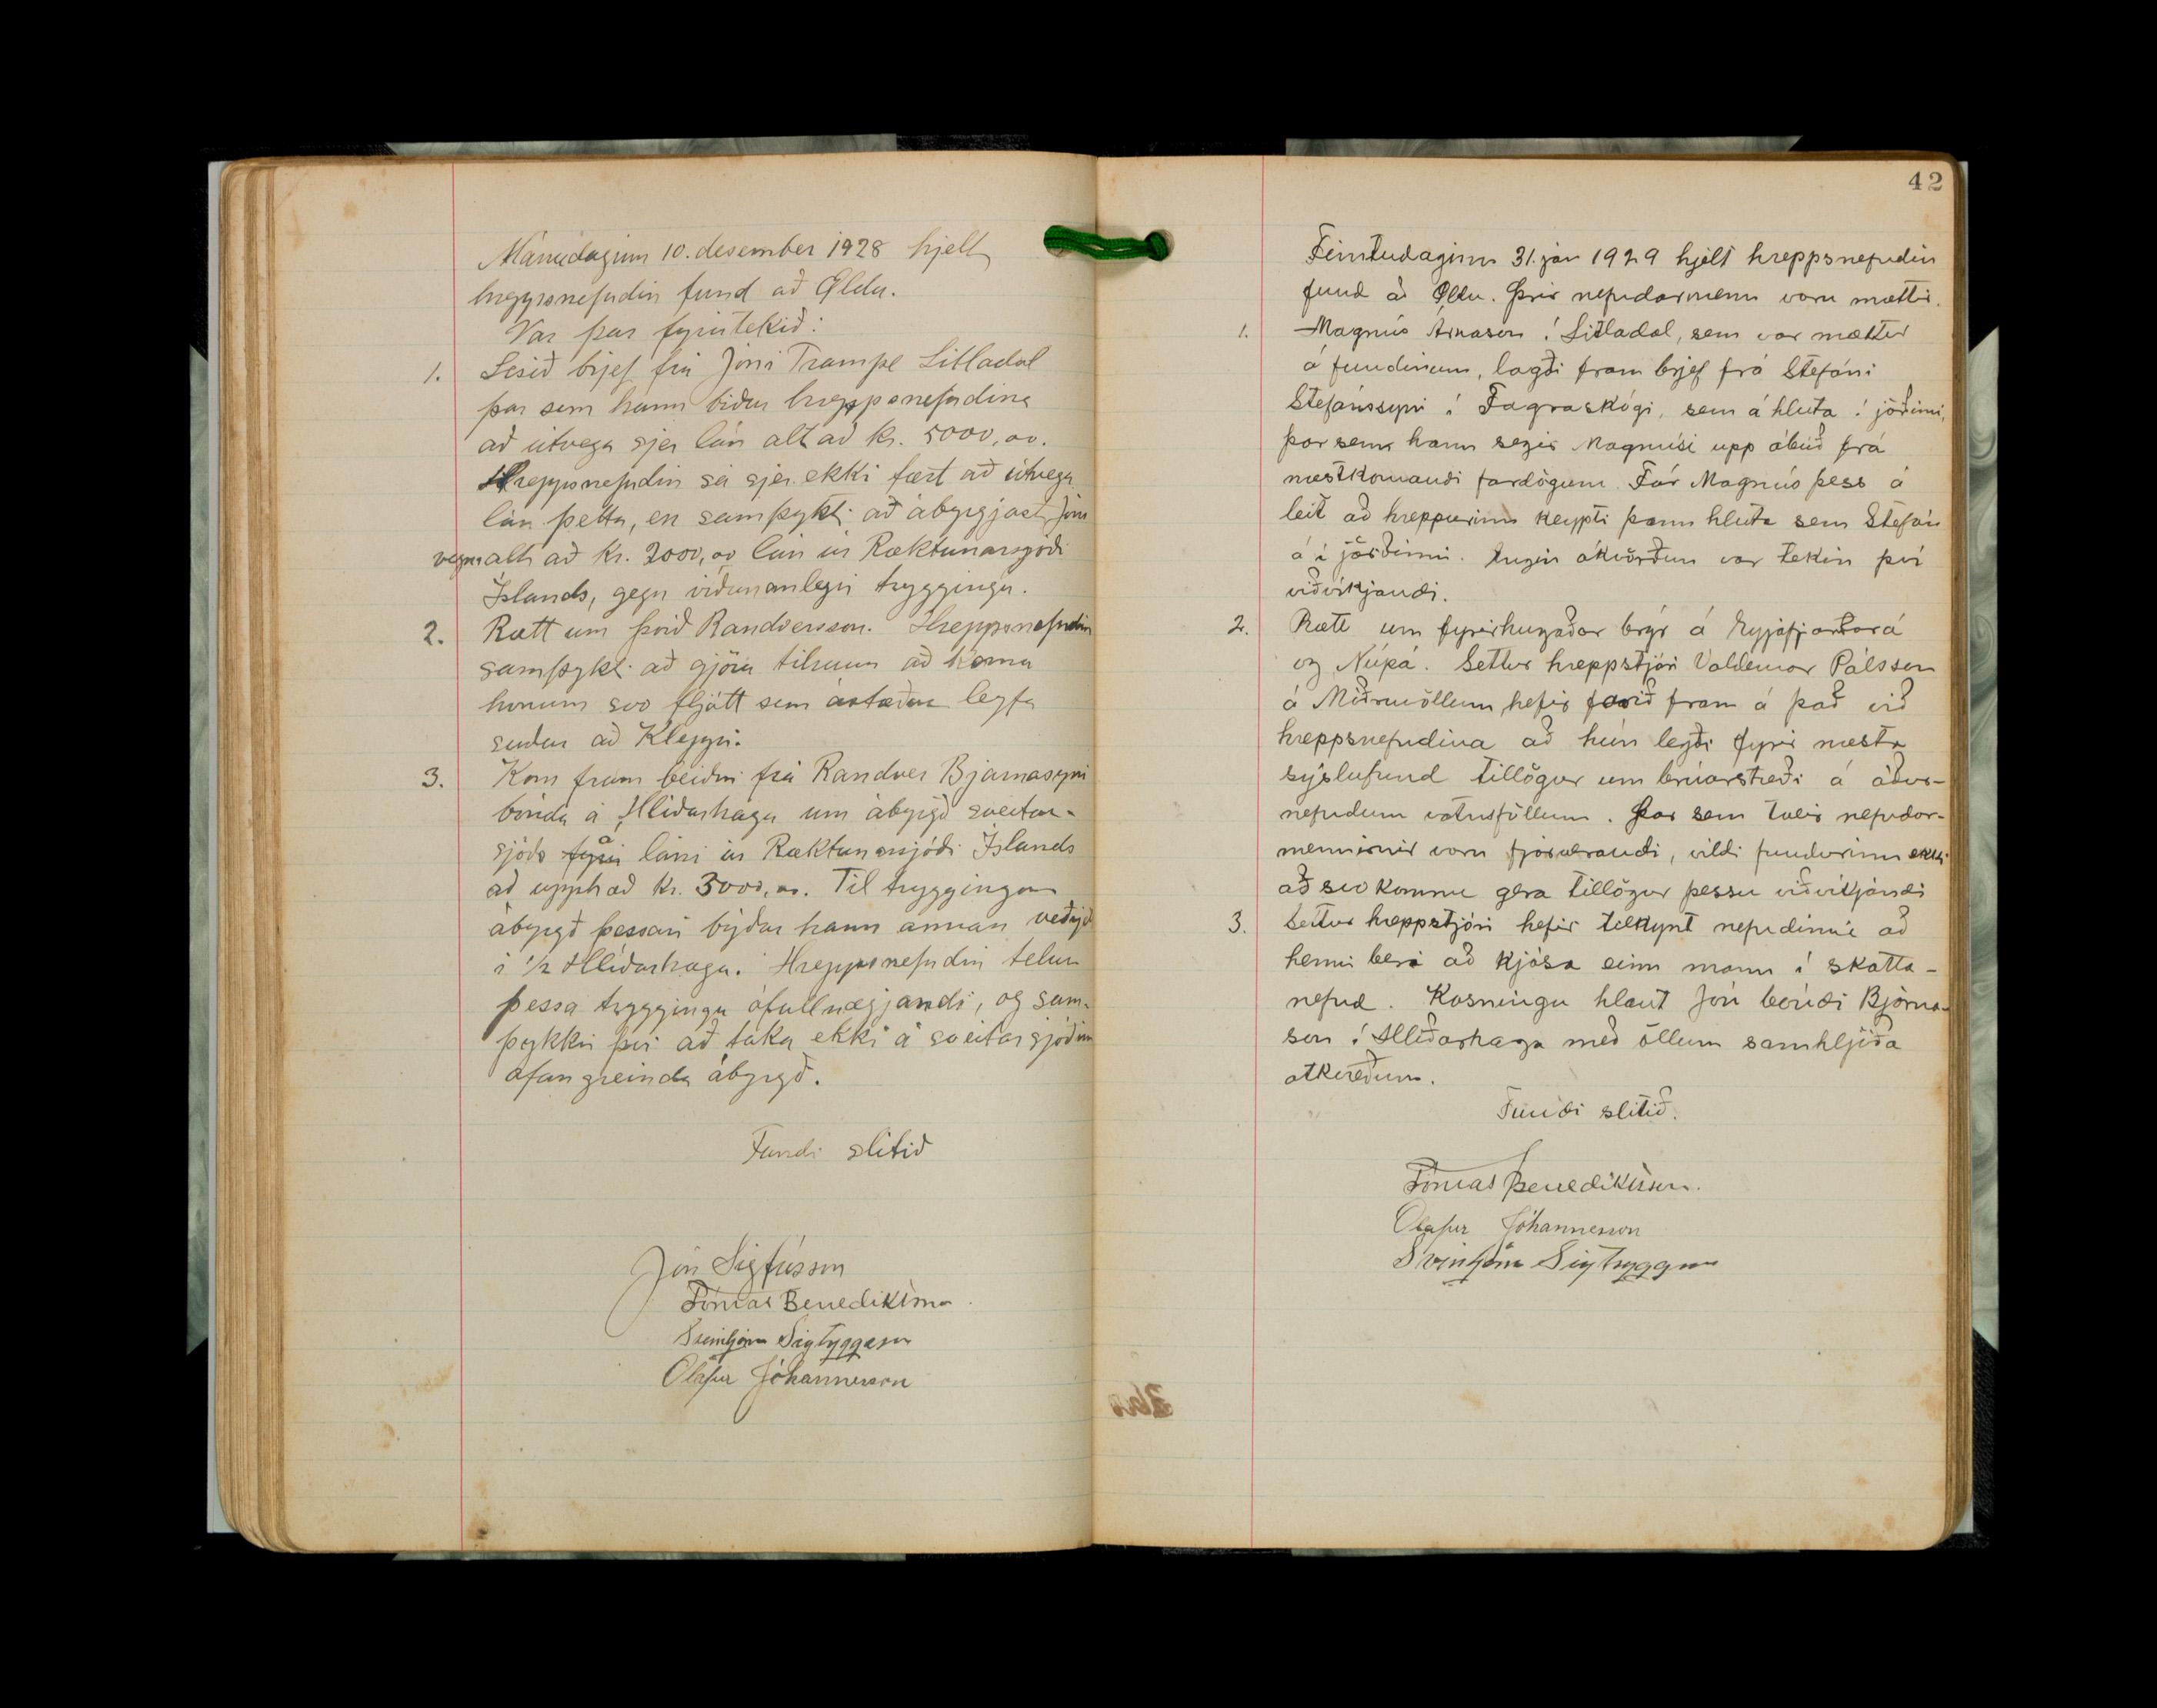 Mánudaginn 10. desember 1928 hjelt
hreppsnefndin fund að Öldu.
Var þar fyrirtekið:
1. Lesið brjef frá Jóni Trampe Litladal
þar sem hann biður hreppsnefndina
að útvega sjer lán alt að kr. 5000,oo.
Hreppsnefndin sá sjer ekki fært að útvega
lán þetta, en samþykti að ábyrgjast Jóns
vegna alt að kr. 2000,oo lán úr Ræktunarsjóði
Íslands, gegn viðunanlegri tryggingu.
2. Rætt um Þrið Randversson. Hreppsnefndin
samþykt að gjöra tilraun að koma
honum svo fljótt sem ástæður leyfa
suður að Kleppi.
3. Kom fram beiðni frá Randver Bjarnasyni
bónda á Hlíðarhaga um ábyrgð sveitar-
sjóðs á láni úr Ræktunarsjóði Íslands
að upphæð kr. 3000,oo. Til tryggingar
ábyrgð þessari býður hann annan veðrjett
í 1/2 Hlíðarhaga. Hreppsnefndin telur
þessa tryggingu ófullnægjandi, og sam-
þykkir því að taka ekki á sveitarsjóðinn
ofangreinda ábyrgð.
Fundi slitið
Jón Sigfússon
Tómas Benediktsson
Sveinbjörn Sigtryggsson
Ólafur Jóhannesson
42
Fimtudaginn 31. jan 1929 hjelt hreppsnefndin
fund að Öldu. Þrír nefndarmenn voru mættir.
1. Magnús Árnason í Litladal, sem var mættur
á fundinum, lagði fram brjef frá Stefáni
Stefánssyni í Fagraskógi, sem á hluta í jörðinni,
þar sem hann segir Magnúsi upp ábúð frá
næstkomandi fardögum. Fór Magnús þess á
leit að hreppurinn keypti þann hluta sem Stefán
á í jörðinni. Engin ákvörðun var tekin því
viðvíkjandi.
2. Rætt um fyrirhugaðar brýr á Eyjafjarðará
og Núpá. Settur hreppstjóri Valdemar Pálsson
á Möðruvöllum hefir farið fram á það við
hreppsnefndina að hún legði fyrir næsta
sýslufund tillögur um brúarstæði á áður-
nefndum vatnsföllum. Þar sem tveir nefndar-
mennirnir voru fjærverandi, vildi fundurinn ekki
að svo komnu gera tillögur þessu viðvíkjandi
3. Settur hreppstjóri hefir tilkynt nefndinni að
henni beri að kjósa einn mann í skatta-
nefnd. Kosningu hlaut Jón bóndi Bjarna-
son í Hlíðarhaga með öllum samhljóða
atkvæðum.
Fundi slitið.
Tómas Benediktsson.
Ólafur Jóhannesson
Sveinbjörn Sigtryggsson